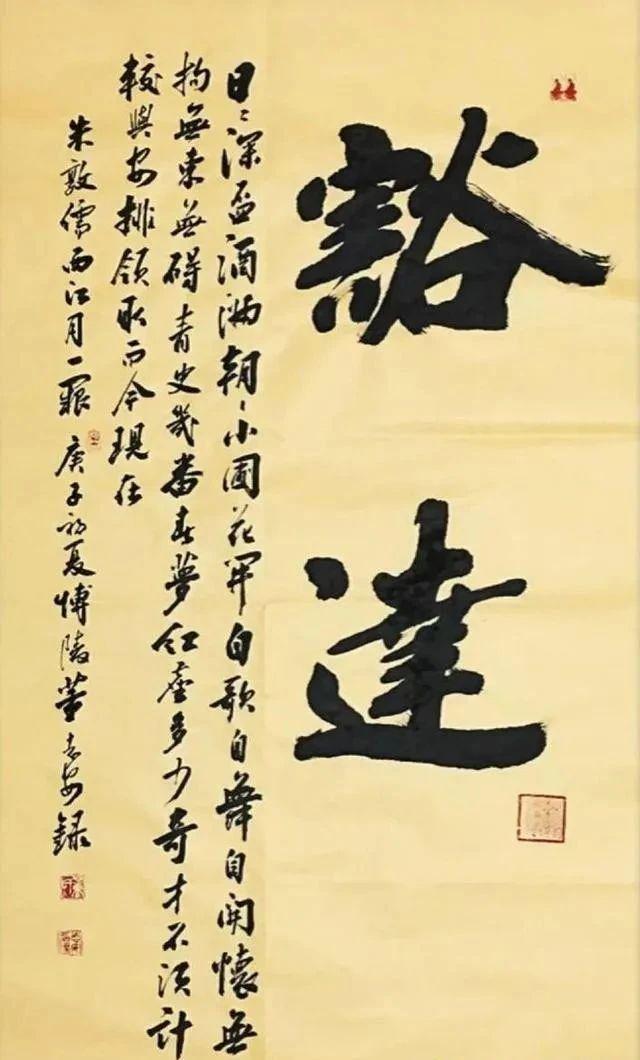 豁達
日〻深盃酒滿朝〻小圃花開自歌自舞自開懷無
拘無束無碍青史幾番春夢紅塵多少奇才不須計
較與安排領取而今現在
朱敦儒西江月一闋 庚子初夏愽陵董安錄